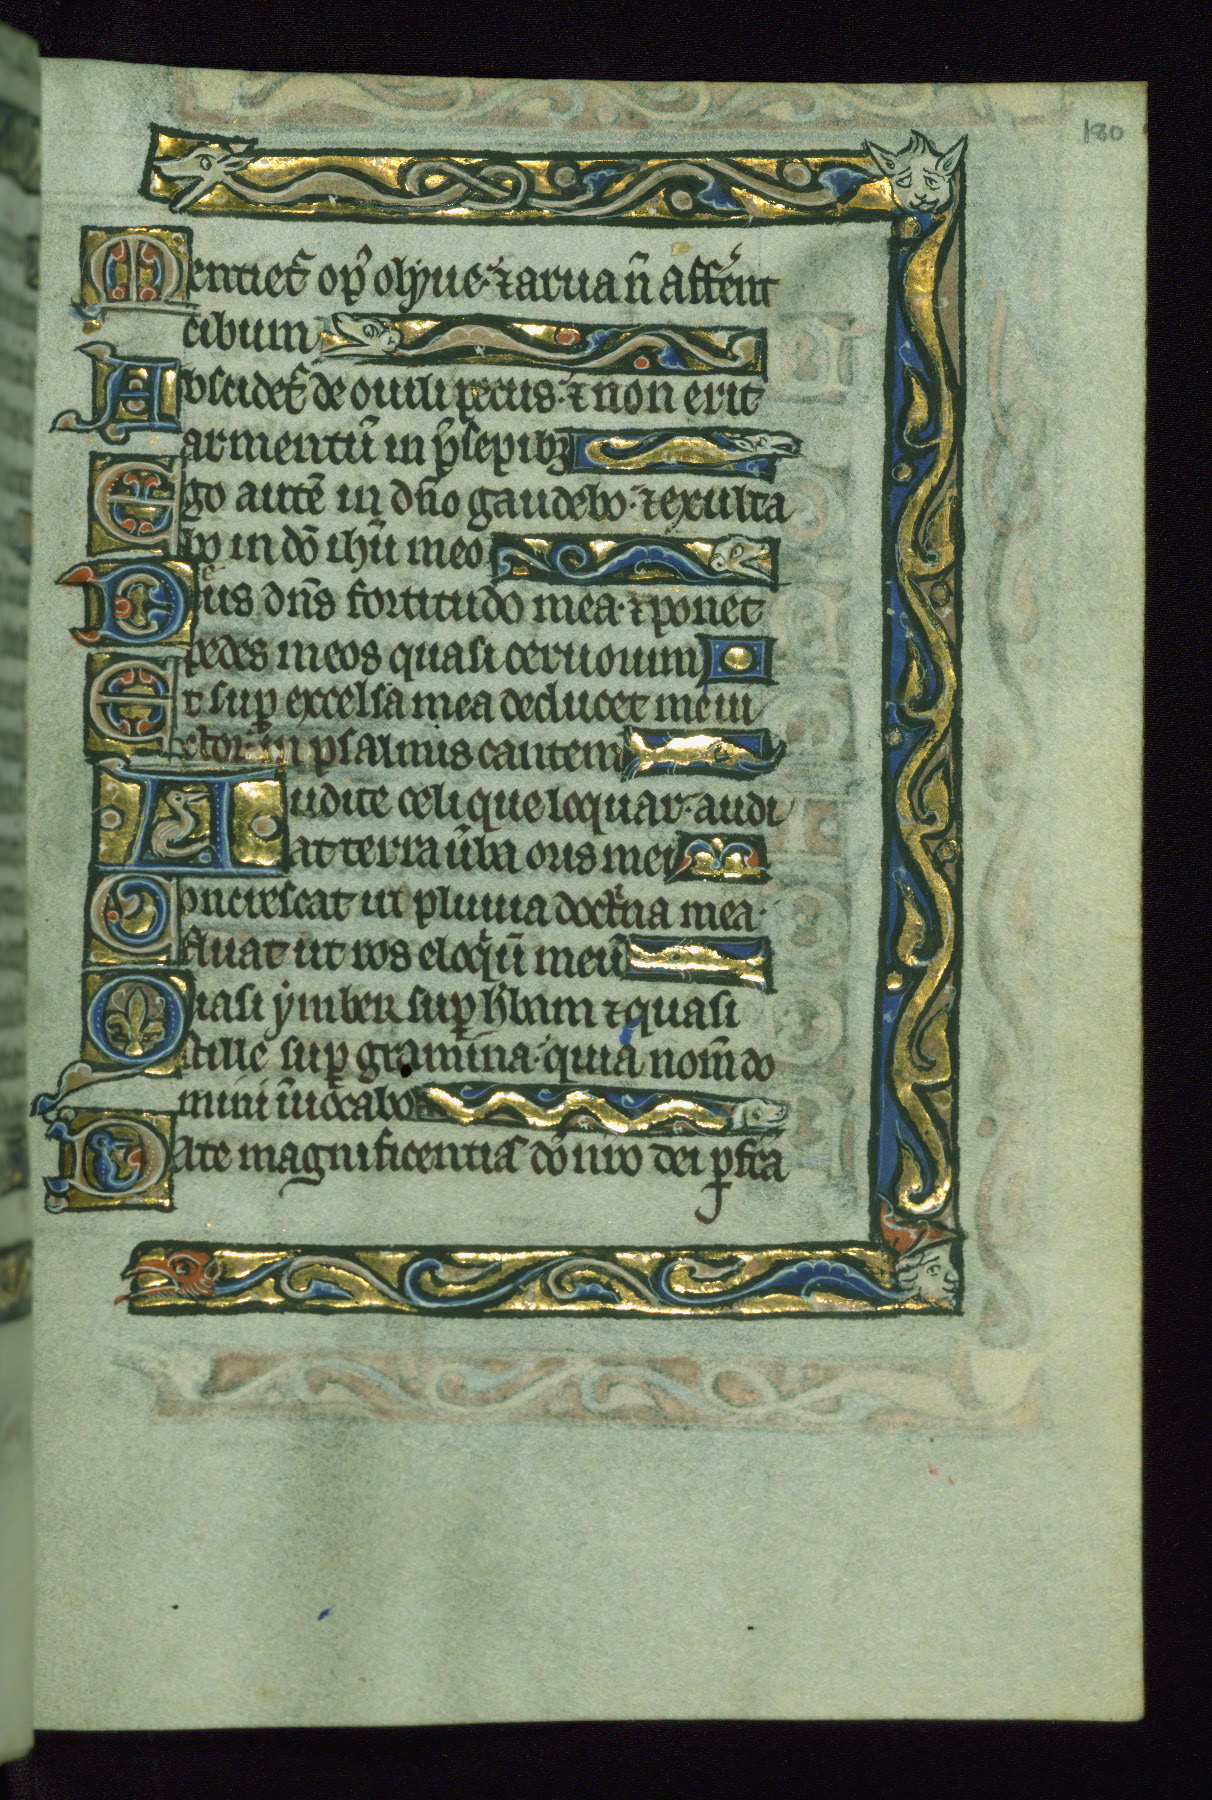 180
Mentiet̄ op̄ olyue· ⁊ arua n̄ affe͛nt
cibum
Abscidet̄ de ouili pecus· ⁊ non erit
armentū in p̄sepibꝫ
Ego autē in dn̄o gaudebo· ⁊ exulta
bo in dō ihū meo
Deus dn̄s fortitudo mea· ⁊ ponet
pedes meos quasi ceruouum
Et suꝑ excelsa mea deducet me ui
ctor· in psalmis cantem
Audite celi que loquar· audi
at terra ūba oris mei
Concrescat ut pluuia doctͥna mea·
fluat ut ros eloqͥū meū
Quasi ymber suꝑ h̄bam ⁊ quasi
stille suꝑ gramina· quia nom̄ do
mini īuocabo
Date magnificentiā dō nr̄o dei ꝑfcā